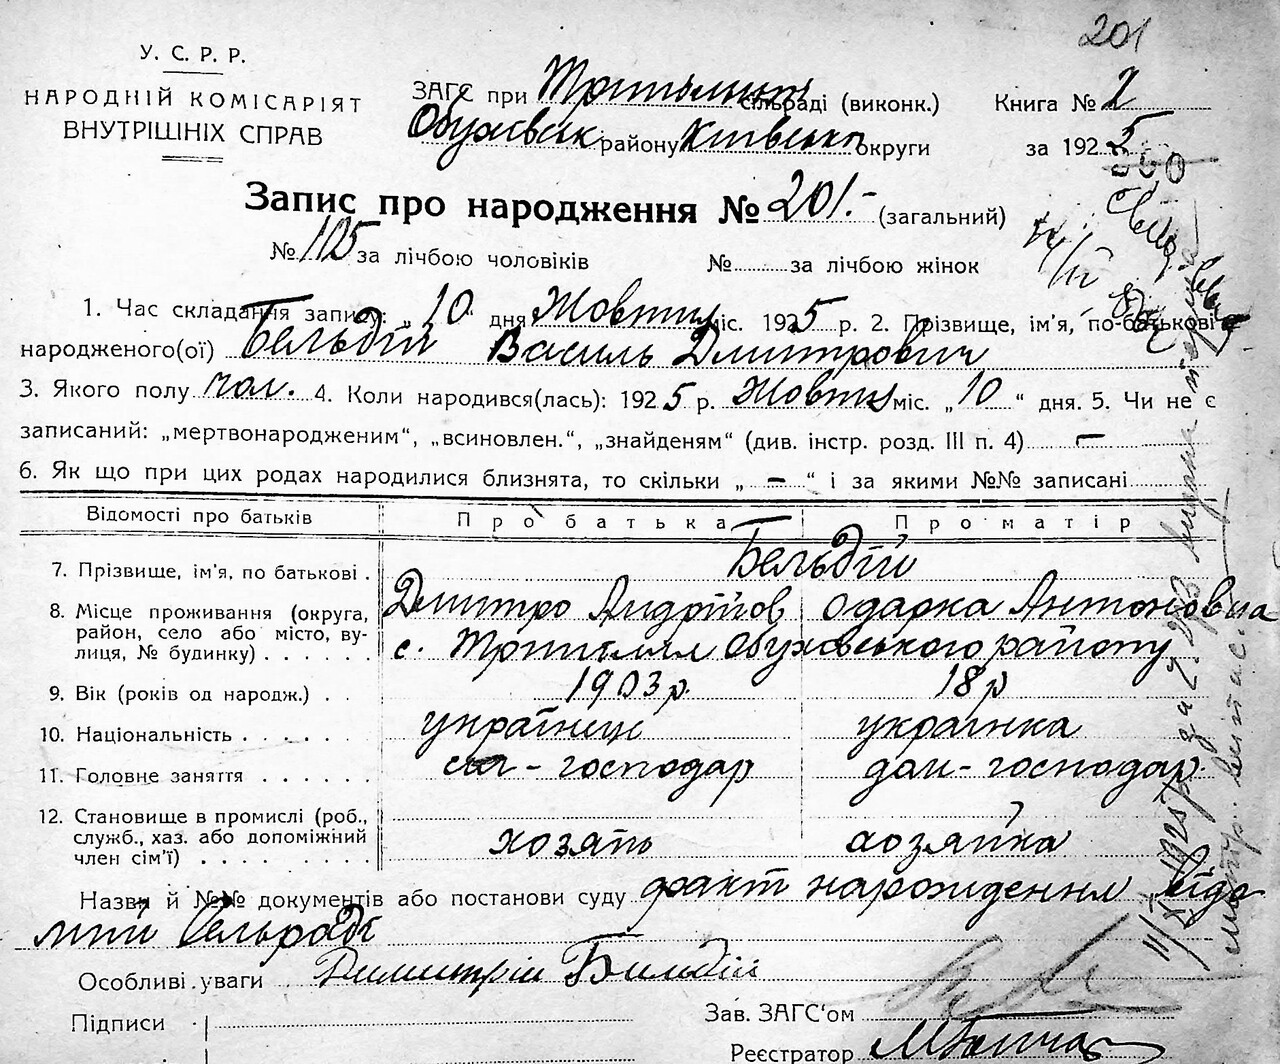 201
У. С. Р. Р.
НАРОДНІЙ КОМІСАРІЯТ
ВНУТРІШНІХ СПРАВ
ЗАГС при Трипільськ сільраді (виконк.) Книга № 2
Обухівськ району Київської округи за 1925
Запис про народження № 201.- (загальний)
№ 105 за лічбою чоловіків № за лічбою жінок
1. Час складання запису: „ 10 " дня Жовтня міс. 1925 р. 2. Прізвище, ім'я, по-батькові
народженого(ої) Бельдій Василь Дмитрович
3. Якого полу чол. 4. Коли народився(лась): 1925 р. Жовтня міс. „ 10 “ дня. 5. Чи не є
записаний: „мертвонародженим“, „всиновлен.“, „знайденям“ (див. інстр. розд. III п. 4) —
6. Як що при цих родах народилися близнята, то скільки „ — “ і за якими №№ записані
Відомості про батьків Про батька Про матір
7. Прізвище, ім'я, по батькові . Бельдій
Дмитро Андріїов Одарка Антоновна
8. Місце проживання (округа,
район, село або місто, ву-
лиця, № будинку) . . . . . . с. Трипілля Обухівського району
9. Вік (років од народж.) . . 1903 р. 18 р
10. Національність . . . . . . українець українка
11. Головне заняття . . . . . . сіл-господар дом-господар.
12. Становище в промислі (роб.,
служб., хаз. або допоміжний
член сім'ї) . . . . . . . . . хозяїн хозяйка
Назви й №№ документів або постанови суду факт нарождення відо
мий Сельраді
Особливі уваги Димитрій Бильдій
Підписи
Зав. ЗАГС'ом
Реєстратор